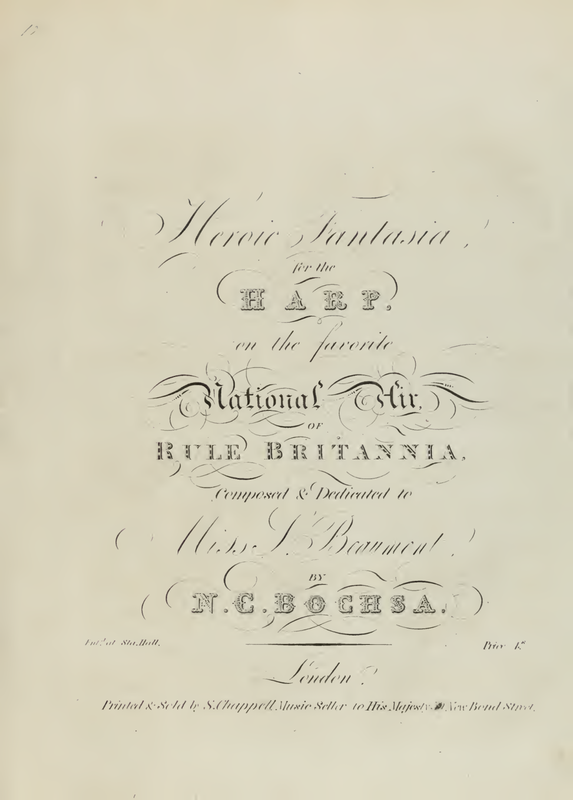 Heroic Fantasia,
for the
HARP,
on the favorite
National Air,
OF
RULE BRITANNIA,
Composed & Dedicated to
Miss Beaumont,
BY
N.C. BOCHSA.
Ent.d at Sta. Hall. Price
London
Printed & Sold by S. Chappell, Music Seller to His Majesty, New Bond Street.